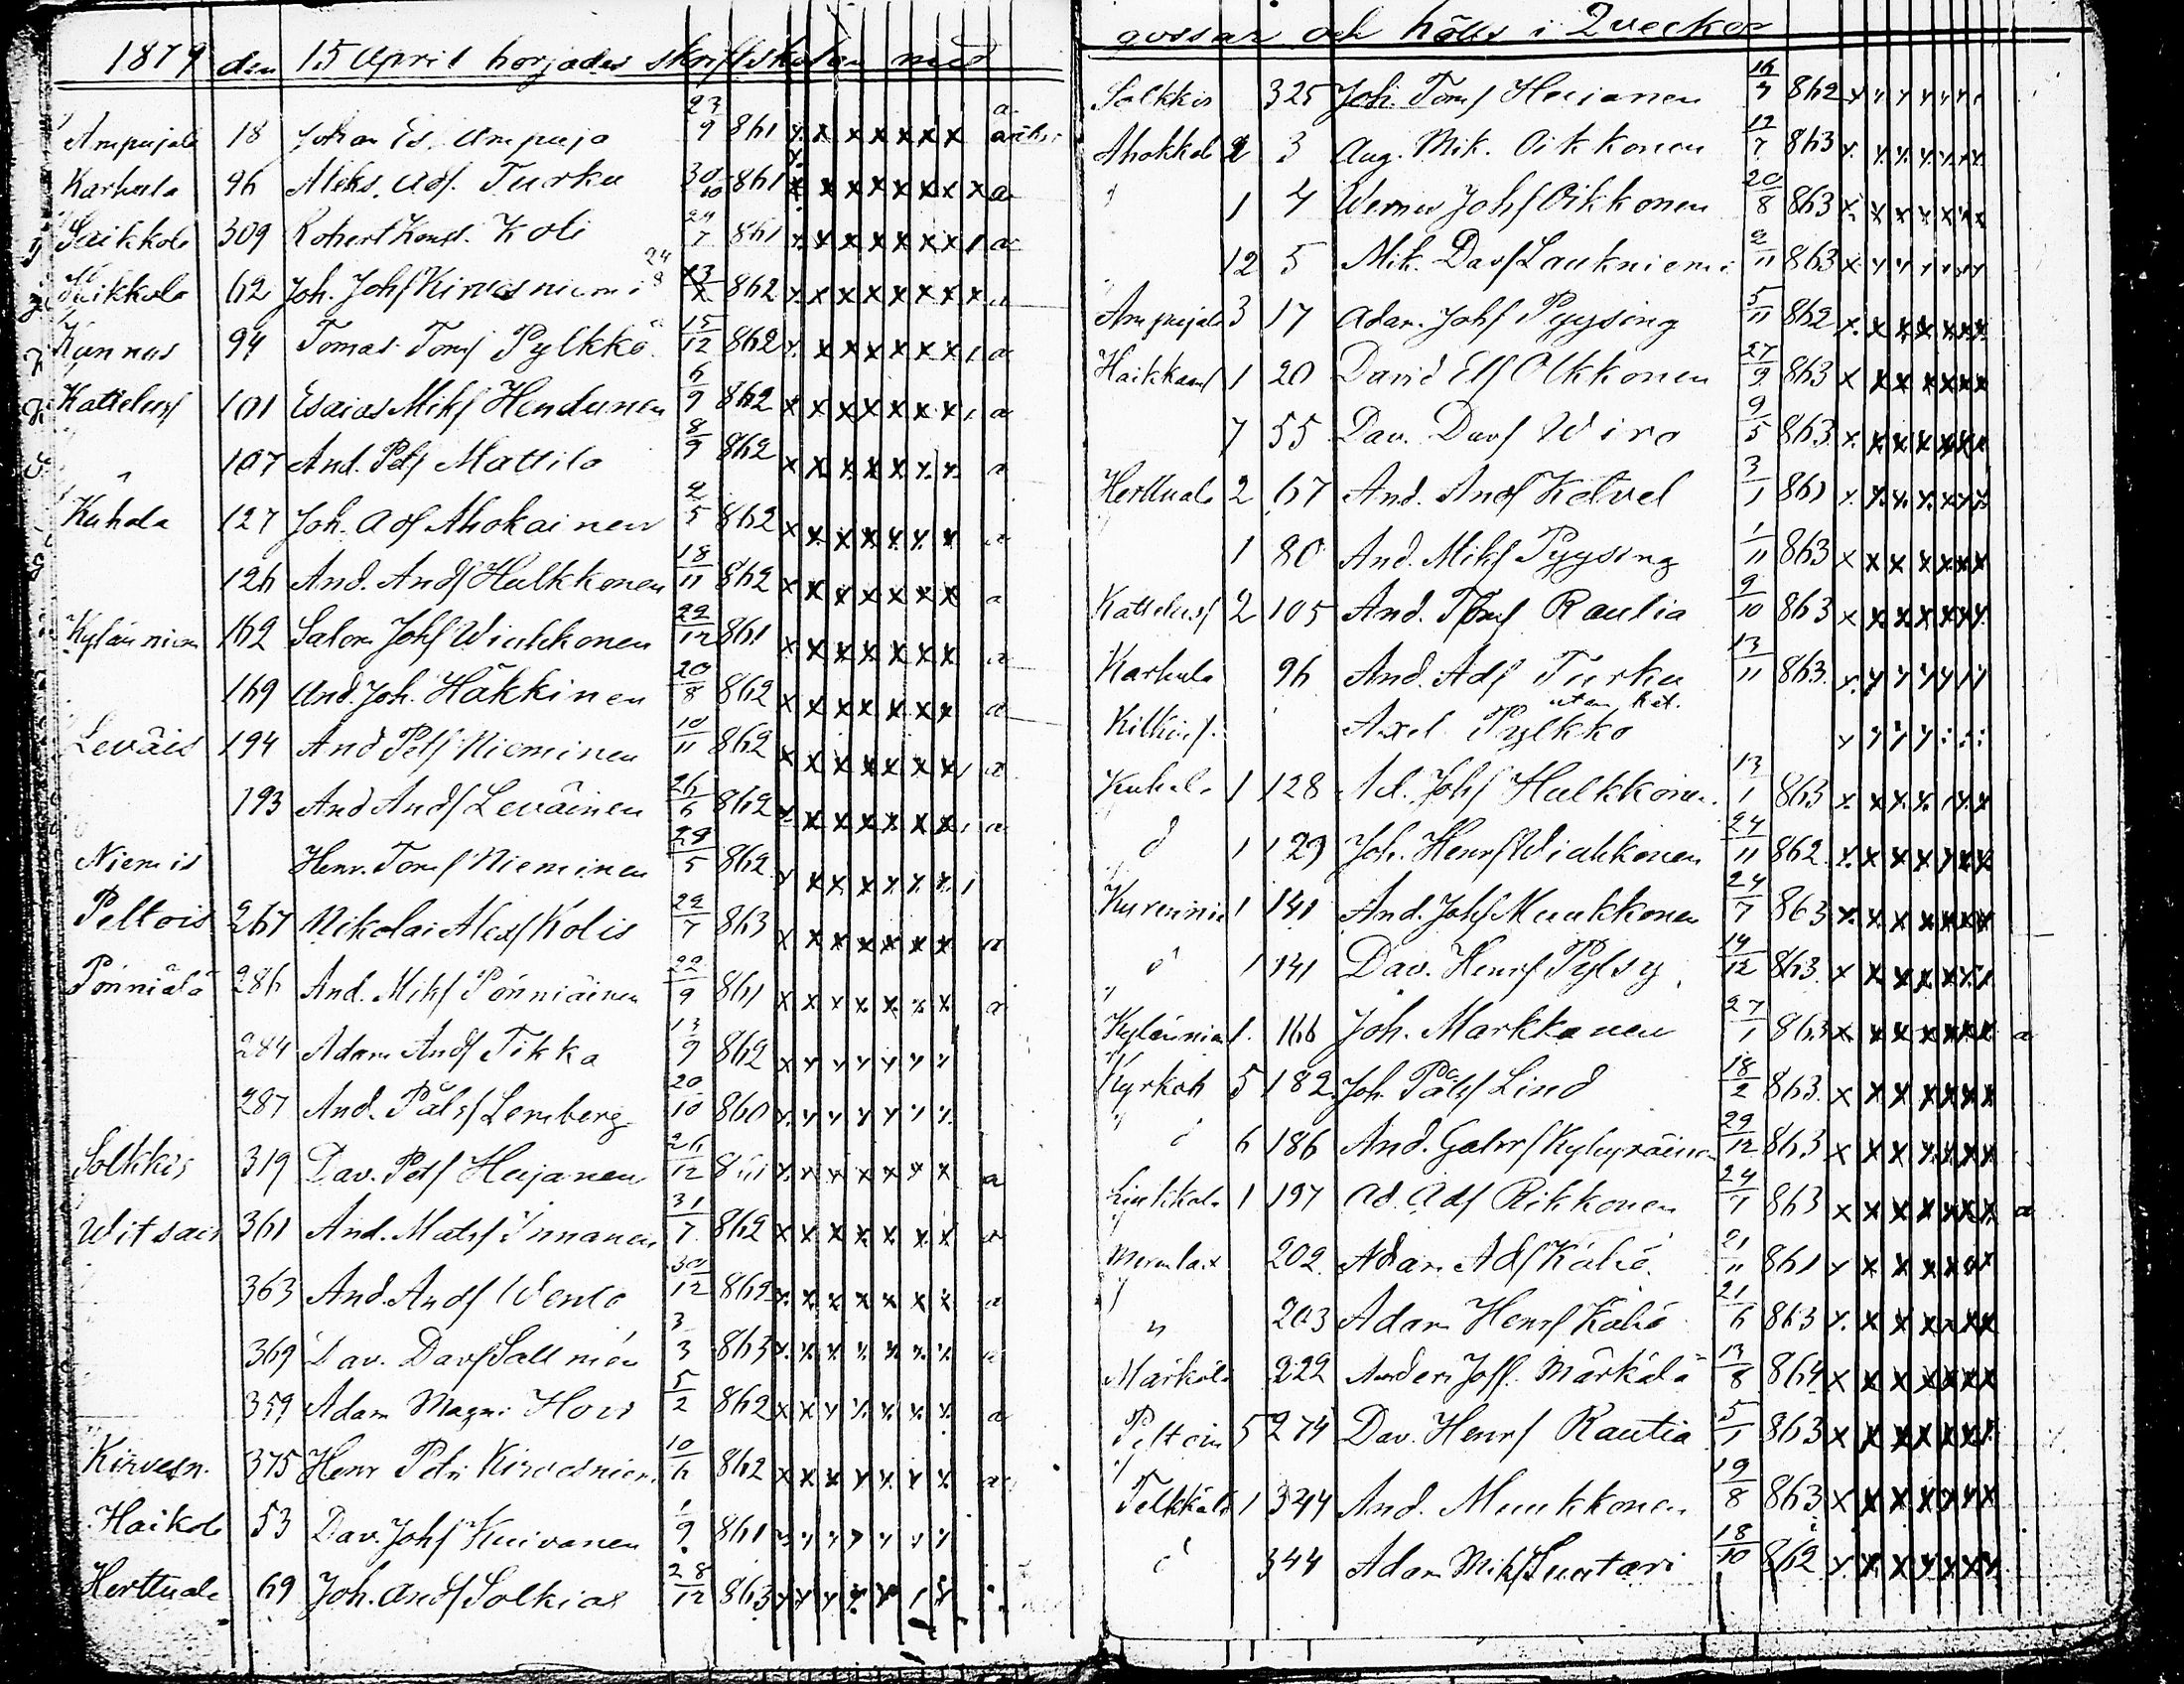 1879 den 15 April borjades skriftskolan med
Ampujala 18 Johan Es. Ampuja 23/9 861 x x x x x x x a
Karhula 96 Aleks. Adf. Turku 30/10 861 x x x x x x x x a
Saikkola 309 Robert Konst. Koli 24/7 861 x x x x x x x a
62 Joh. Johf Kirvesniemi 24/8 862 x x x x x x x x a
Kunnas 94 Tomas Tomf Pylkkö 15/12 862 x x x x x x x a
Kattelusf 101 Esaias Mikf Hendunen 6/9 862 x x x x x x x a
" 107 And. Petf Mattila 8/9 862 x x x x x x x a
Kuhala 127 Joh. Adf Ahokainen 2/5 862 x x x x x x x a
126 And. Andf Hulkkonen 18/11 862 x x x x x x x a
Kylänniem 162 Salom Johf Wiukkonen 22/12 861 x x x x x x x a
169 And. Joh. Häkkinen 20/8 862 x x x x x x x a
Leväis 194 And Petf Nieminen 10/11 862 x x x x x x x a
193 And Andf Leväinen 26/6 862 x x x x x x x a
Niemis Henr. Tomf Nieminen 29/5 862 x x x x x x x
Peltois 267 Nikolai Alexf Kolis 22/7 863 x x x x x x x a
Pönniälä 286 And. Mikf Pönniäinen 22/9 861 x x x x x x x a
284 Adam Andf Tikka 13/9 862 x x x x x x x
287 And. Pålsf Lemberg 20/10 860 x x x x x x x
Solkkis 319 Dav. Petf Heijanen 26/12 x x x x x x x a
Witsais 361 And. Matsf Immanen 31/7 862 x x x x x x x a
363 And. Andf Wento 30/12 862 x x x x x x x a
369 Dav. Davf 3/3 863 x x x x x x x a
359 Adam Magn. 5/2 862 x x x x x x x a
Kirvesn. 375 Henr Petri Kirvesniem. 10/6 862 x x x x x x x a
Haikola 53 Dav. Johf Kuivanen 1/9 861 x x x x x x x
Herttuala 69 Joh. Andf Solkias 28/12 863 x x x x x x x
gossar och hölls i 2 veckor
Solkkis 325 Joh. Tomf Heijanen 16/9 862 x x x x x x x
Ahokkal 2 3 Aug. Mik. Oikkonen 17/7 863 x x x x x x x
" 1 4 Werner Johf Oikkonen 20/8 863 x x x x x x x
" 12 5 Mik. Davf Laukniemi 2/11 863 x x x x x x x
Ampujala 3 17 Adam. Johf Pyysing 5/11 862 x x x x x x x
Haikkanf 1 20 David Elf Olkkonen 27/9 863 x x x x x x x
7 55 Dav. Davf Wiro 9/5 863 x x x x x x x
Herttuala 2 67 And. Andf Ketvel 3/1 861 x x x x x x x
" 1 80 And. Mikf Pyysing 1/11 863 x x x x x x x
Kattelusf 2 105 And. Tomf Raulia 9/10 863 x x x x x x x
Karhula 96 And. Adf Turku 13/11 863 x x x x x x x
utan Kat.
Axel Pylkko x x x x
Kuhala 1 128 Ad. Johf Hulkkonen 13/1 863 x x x x x x x
d 1 129 Joh. Henrf Wiukkonen 24/11 862 x x x x x x x
1 141 And. Johf Muukkonen 24/7 863 x x x x x x x
d 1 141 Dav. Henrf Pylsy 14/12 863 x x x x x x x
Kylänniem 1. 166 Joh. Markkanen 27/1 863 x x x x x x x a
Kyrkob 5 182 Joh. Pålsf Lind 18/2 863 x x x x x x x
" d 6 186 And. Gabrf Kyhyräinen 29/12 863 x x x x x x x
1 197 Ad. Adf Rikkonen 863 x x x x x x x a
202 Adam Adf Kähö 21/11 861 x x x x x x x
" 203 Adam Henrf Kähö 21/6 863 x x x x x x x
Märkälä 222 Anders Johf. Märkälä 13/8 864 x x x x x x x
Peltois 5 274 Dav. Henrf Rautia 5/1 863 x x x x x x x
Telkkälä 1 344 And. Muukkonen 19/8 863 x x x x x x x
d 344 Adam Mikf Suntari 18/10 862 x x x x x x x